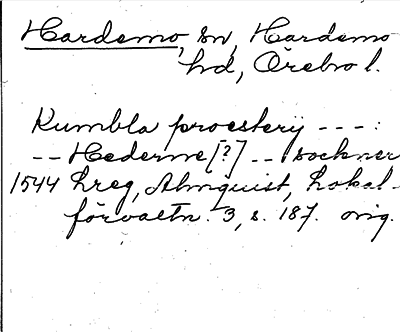 Hardemo, sn, Hardemo
hd, Örebro l.
Kumbla prosterij ---:
-- Hederne [?] -- sockner
1544 Lreg, Almquist, Lokal-
förvaltn. 3, s. 187. orig.